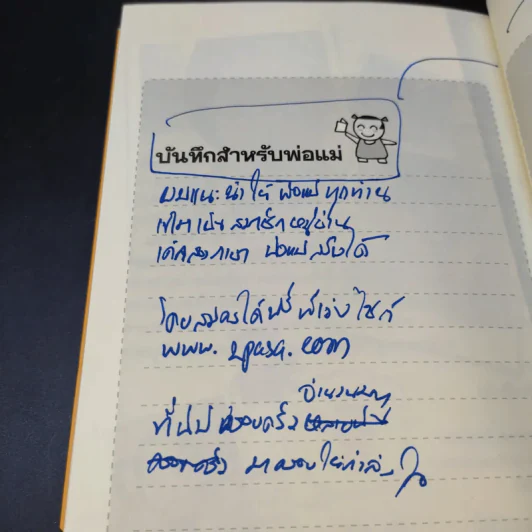 บันทึกสำหรับพ่อแม่
ผมแนะนำให้ พ่อแม่ ทุกท่าน
เข้ามาเป็น สมาชิกหมู่บ้าน
เด็กสองภาษา พ่อแม่สร้างได้
โดยสมัครได้ฟรี ที่เว่บไซต์
www.2pasa.com
ที่นี่มี ครอบครัว
จำนวนมาก
มาคอยให้กำลังใจ